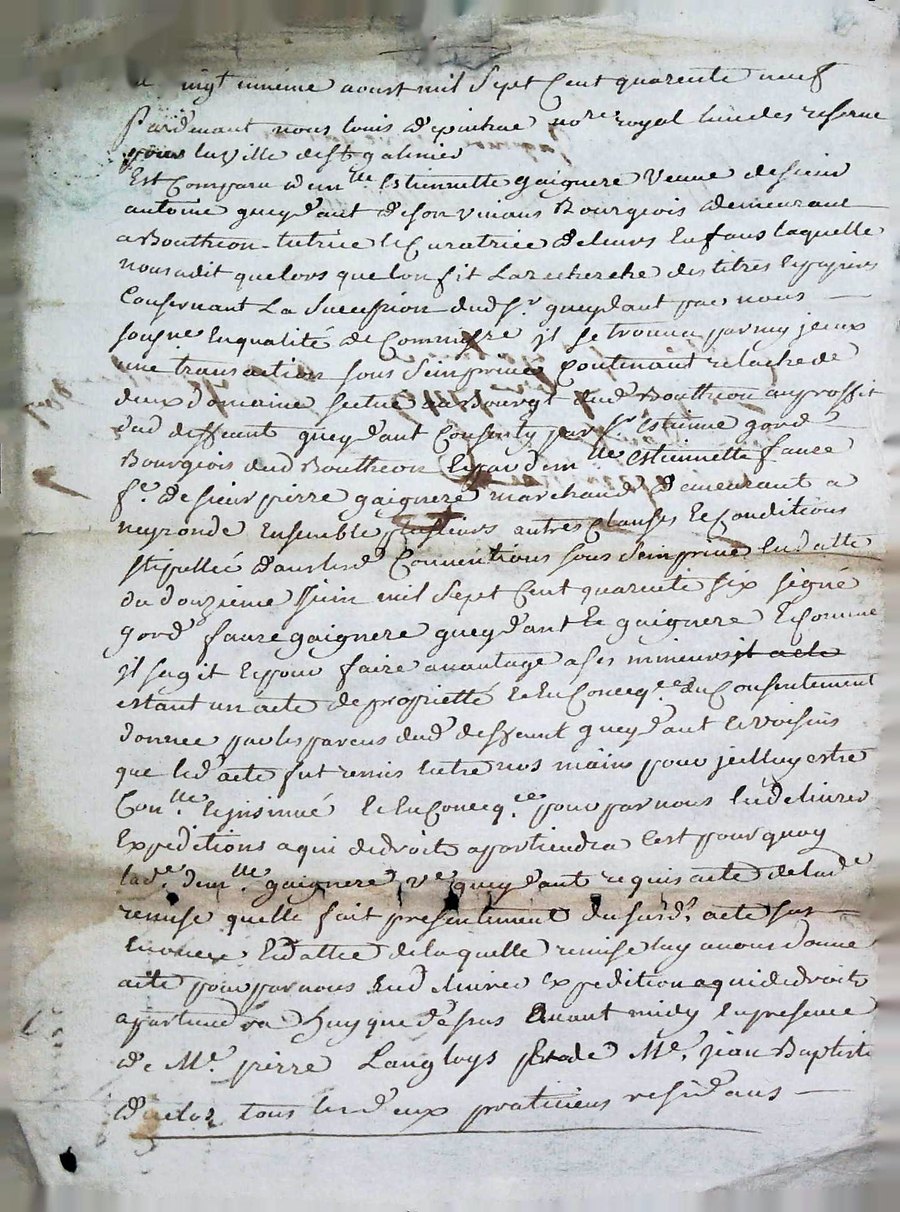 vingt unième aoust mil sept cent quarente neuf
Pardevant nous louis d'epinhac no.re royal un des reserue
pour la ville de st galmier
Est Comparu dem.lle Estiennette gaignere veuue de sieur
antoine gueydant de son viuant Bourgeois demeurant
a Boutheon tutrice et Curatrice de leurs Enfans laquelle
nous a dit que lors que lon fit La recherche des titres et papiers
Consernant La Sucession dud s.r gueydant par nous
soigne En qualité de Commiss.re il se trouua parmy jceux
une transaction sous sein priué Contenant relache de
deux domaine scitué au Bourg et Lud Boutheon au proffit
dud deffunt gueydant Consenty par s.r Estienne gord
Bourgeois dud Boutheon et par dem.lle Estiennette faure
f.e de sieur pierre gaignere marchand demeurant a
neyronde Ensemble plusieurs autres Clauses et Conditions
stipullée dans lesd Conuentions sous sein priué En datte
du douzieme Juin mil sept cent quarente six signé
gord faure gaignere gueydant et gaignere Et Comme
il sagit et pour faire auantage a ses mineurs il acte
estant un acte de proprietté et En Conceq.ce du Consentement
donnée par les parens dud deffunt gueydant et voisins
que led acte fut remis entre nos mains pour jcelluy estre
Con.llé et insinué et En Conceq.ce pour par nous En deliurer
Expeditions a qui de droit apartiendra C'est pourquoy
lad.e dem.lle gaignere v.e gueydant requis acte de lad.e
remise quelle fait presentiment du susd.t acte sur
Lad.e datte de laquelle remise luy auons donné
acte pour par nous En deliurer expedition a qui de droit
apartiendra huy que dessus auant midy En presence
de M.e pierre Langloys et de M.e jean Baptiste
tous les deux praticiens residans